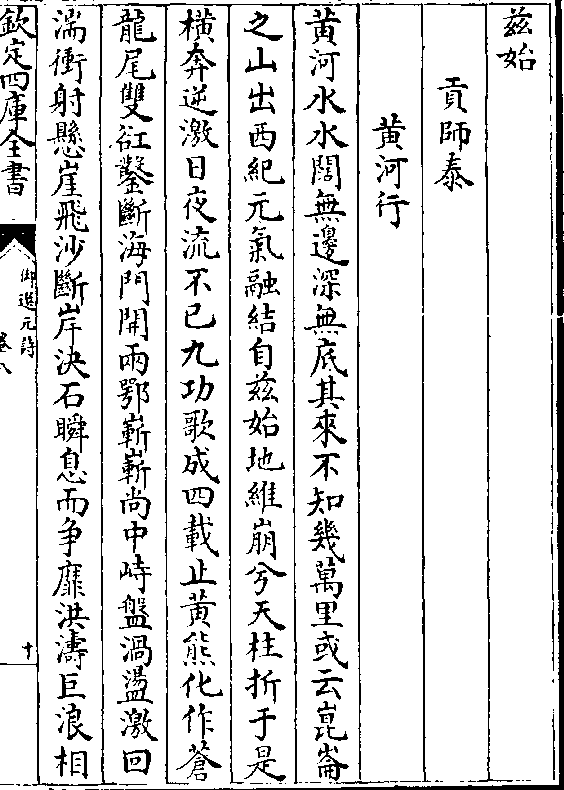 兹始
貢師泰
黄河行
黄河水水闊無邊深無底其來不知幾萬里或云崑崙
之山出西紀元氣融結自兹始地維崩兮天柱折于是
横奔逆激日夜流不已九功歌成四載止黄熊化作蒼
龍尾雙谼鑿斷海門開兩鄂嶄嶄尚中峙盤渦盪激回
湍衝射懸崖飛沙斷岸決石瞬息而争靡洪濤巨浪相
欽定四庫全書
御選元詩
卷八
十